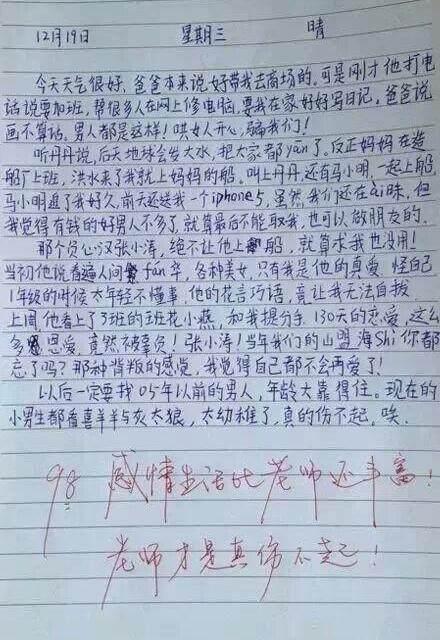 12月19日 星期三 晴
今天天气很好，爸爸本来说好带我去商场的，可是刚才他打电
话说要加班，帮很多人在网上修电脑，要我在家好好写日记。爸爸说
画不算话，男人都是这样！哄女人开心，骗我们！
听丹丹说，后天地球会发大水，把大家都yān了。反正妈妈在造
船厂上班，洪水来了我就上妈妈的船。叫上丹丹还有马小明，一起上船，
马小明追了我好久，前天还送我一个iphone5，虽然我们还在ài昧，但
我觉得有钱的好男人不多了，就算最后不能取我，也可以做朋友的。
那个负心汉张小涛，绝不让他上船，就算求我也没用！
当初他说看遍人间fán华，各种美女，只有我是他的真爱，怪自己
1年级的时候太年轻不懂事，他的花言巧语，竟让我无法自拔，
上周，他看上了3班的班花小燕，和我提分手，130天的恋爱，这么
多恩爱，竟然被辜负！张小涛！当年我们的山盟海Shì你都
忘了吗？那种背叛的感觉，我觉得自己都不会再爱了！
以后一定要找05年以前的男人，年龄大靠得住。现在的
小男生都看喜羊羊与灰太狼，太幼稚了，真的伤不起，唉。
98 感情生活比老师还丰富！
老师才是真伤不起！